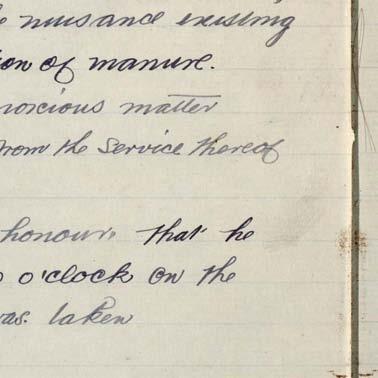 nuisance existing
on of manure.
noxious matter
from the service thereof
honour, that he
o'clock on the
was taken